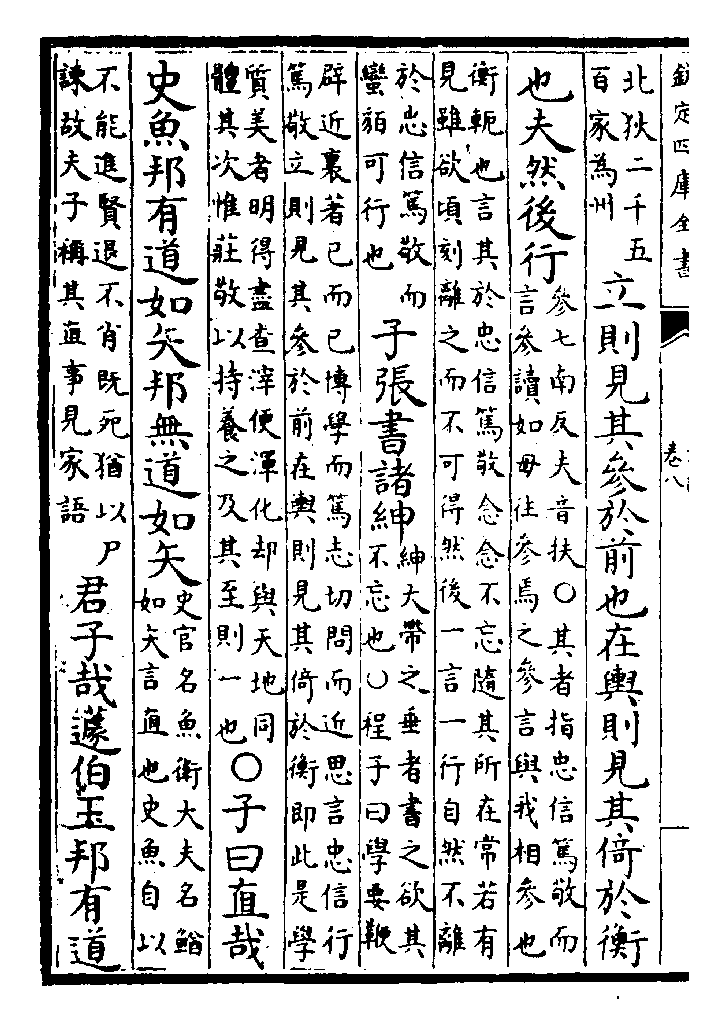 欽定四庫全書
卷八
北狄二千五
百家為州
立則見其參於前也在輿則見其倚於衡
也夫然後行
參七南反夫音扶○其者指忠信篤敬而
言參讀如毋往參焉之參言與我相參也
衡軛也言其於忠信篤敬念念不忘隨其所在常若有
見雖欲頃刻離之而不可得然後一言一行自然不離
於忠信篤敬而
蠻貊可行也
子張書諸紳
紳大帶之垂者書之欲其
不忘也○程子曰學要鞭
辟近裏著已而已博學而篤志切問而近思言忠信行
篤敬立則見其參於前在輿則見其倚於衡即此是學
質美者明得盡查滓便渾化却與天地同
體其次惟莊敬以持養之及其至則一也
○子曰直哉
史魚邦有道如矢邦無道如矢
史官名魚衛大夫名鰌
如矢言直也史魚自以
不能進賢退不肖既死猶以尸
諫故夫子稱其直事見家語
君子哉蘧伯玉邦有道